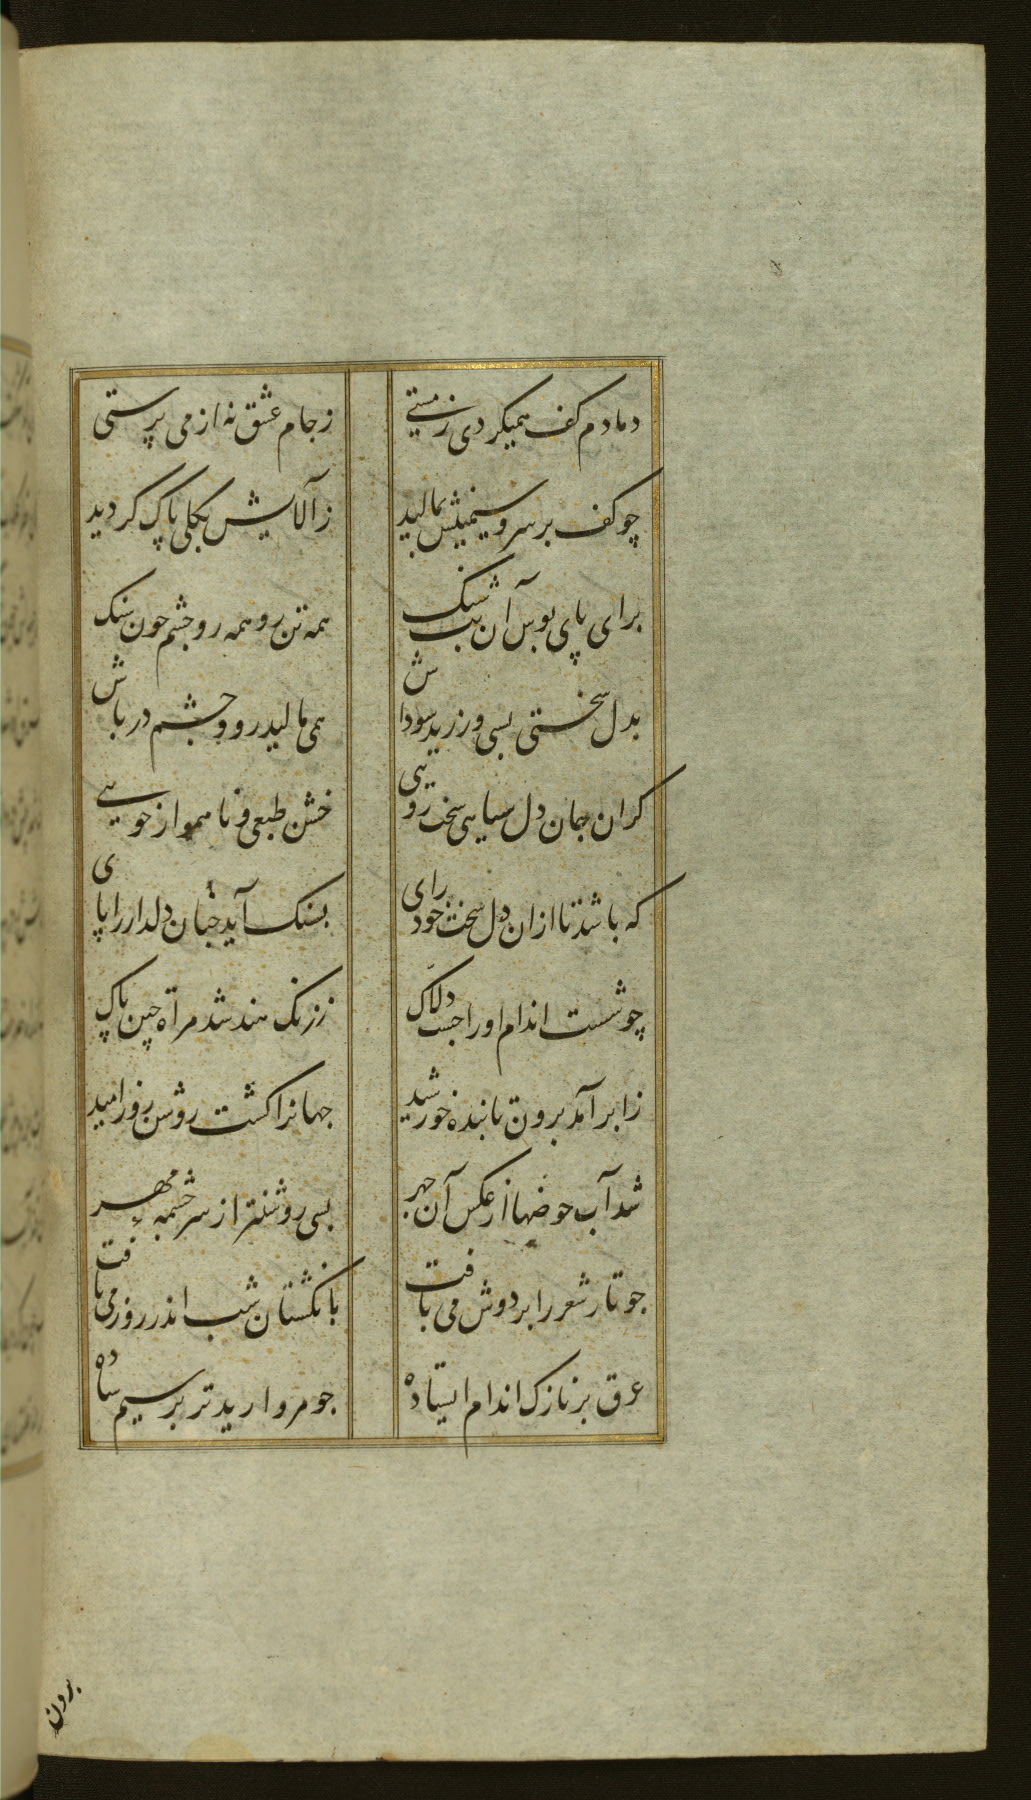 دمادم کف همیکردی زمستی
زجام عشق نه از می پرستی
چو کف بر سرو سیمینش بمالید
زآلایش بکلی پاک کردید
برای پای بوس آن بت شنک
همه تن رو همه رو چشم چون سنک
بدل سختی بسی ورزید سوداش
همی مالید رو و چشم در پاش
کران جان دل سیاهی سخت رویی
خشن طبعی و ناهموار خویی
که باشد تا از آن دل سخت خود رای
بسنک آید چنان دلدار را پای
چو شست اندام او را چست دلاک
ززنک هند شد مرآة چین پاک
زابر آمد برون تابنده خورشید
جهانرا کشت روشن روز امید
شد آب حوضها از عکس آن چهر
بسی روشنتر از سرچشمهٔ مهر
چو تار شعر را بر دوش می بافت
بانکشتان شب اندر روز می یافت
عرق بر نازک اندام ایستاده
چو مروارید تر بر سیم ساده
برون